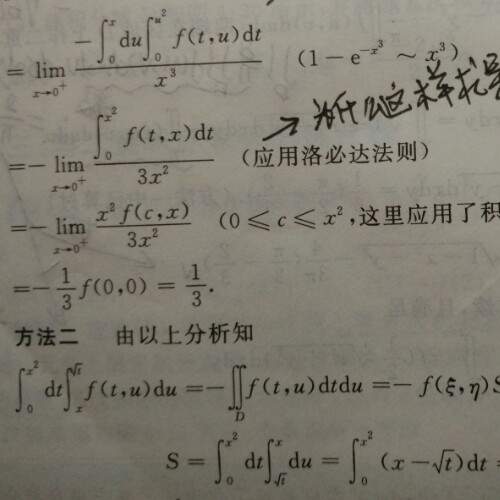 = lim_{x→0⁺} \frac{-∫_0^x du ∫_0^{u²} f(t,u)dt}{x³} (1-e^{-x³} ~ x³)
→ 为什么这样求导
=- lim_{x→0⁺} \frac{∫_0^{x²} f(t,x)dt}{3x²} (应用洛必达法则)
=- lim_{x→0⁺} \frac{x² f(c,x)}{3x²} (0⩽c⩽x²,这里应用了积
=- \frac{1}{3} f(0,0) = \frac{1}{3}.
方法二 由以上分析知
∫_0^{x²} dt ∫_x^{√t} f(t,u)du =- ∬_D f(t,u)dtdu =- f(ξ,η)S
S = ∫_0^{x²} dt ∫_{√t}^x du = ∫_0^{x²} (x-√t)dt =